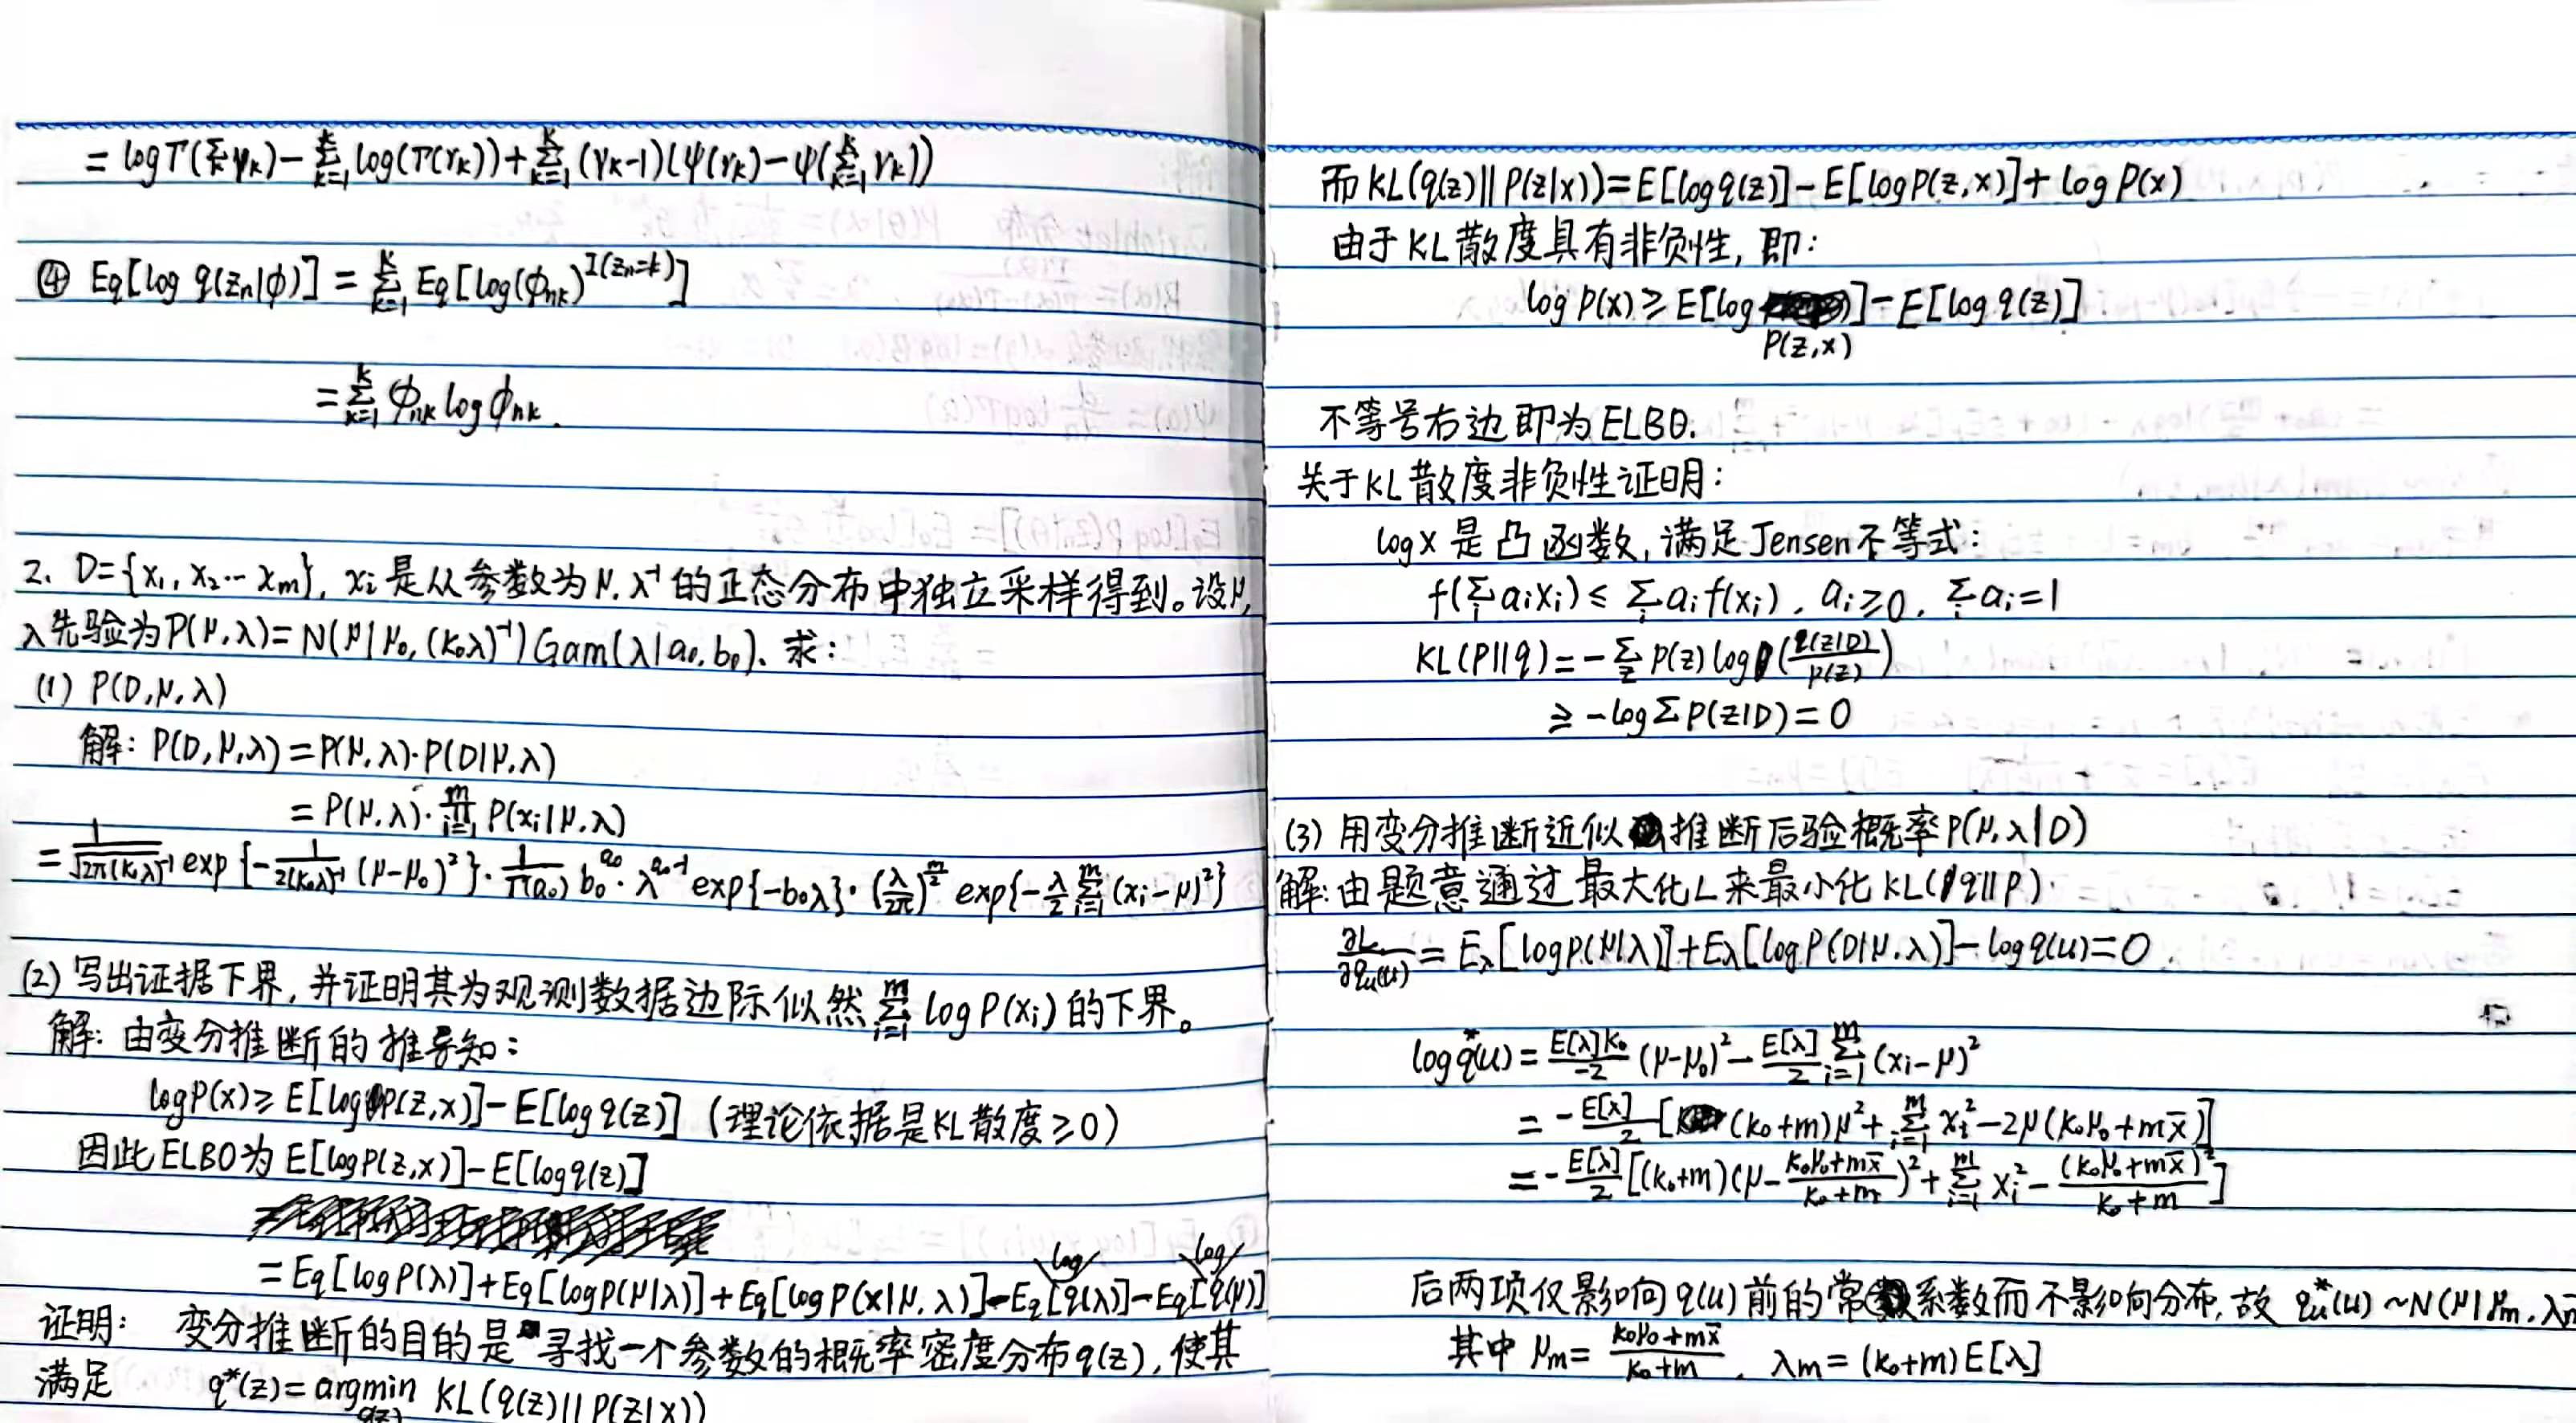 = log Γ(Σ_k γ_k) − Σ_{k=1}^{k} log(Γ(γ_k)) + Σ_{k=1}^{k} (γ_k−1)(ψ(γ_k) − ψ(Σ_{k=1}^{k} γ_k))
④ Eq[log q(z_n|φ)] = Σ_{k=1}^{k} Eq[log(φ_nk)^{I(z_n=k)}]
= Σ_{k=1}^{k} φ_nk log φ_nk.
2. D={x₁, x₂⋯x_m}, x_i 是从参数为μ, λ⁻¹的正态分布中独立采样得到。设μ,
λ先验为P(μ,λ)=N(μ|μ₀,(k₀λ)⁻¹)Gam(λ|a₀,b₀). 求:
(1) P(D,μ,λ)
解: P(D,μ,λ)=P(μ,λ)·P(D|μ,λ)
= P(μ,λ)·Π_{i=1}^{m} P(x_i|μ,λ)
= 1/√(2π(k₀λ)⁻¹) exp{−1/(2(k₀λ)⁻¹) (μ−μ₀)²}·1/Γ(a₀) b₀^{a₀}·λ^{a₀−1} exp{−b₀λ}·(λ/2π)^{m/2} exp{−λ/2 Σ_{i=1}^{m}(x_i−μ)²}
(2) 写出证据下界, 并证明其为观测数据边际似然 Σ_{i=1}^{m} log P(x_i) 的下界。
解: 由变分推断的推导知:
log P(x) ≥ E[log P(z,x)] − E[log q(z)] (理论依据是KL散度≥0)
因此ELBO为 E[log P(z,x)] − E[log q(z)]
= Eq[log P(λ)] + Eq[log P(μ|λ)] + Eq[log P(x|μ,λ)] − Eq[log q(λ)] − Eq[log q(μ)]
证明: 变分推断的目的是寻找一个参数的概率密度分布q(z), 使其
满足 q*(z) = argmin_{q(z)} KL(q(z)||P(z|x))
而 KL(q(z)||P(z|x)) = E[log q(z)] − E[log P(z,x)] + log P(x)
由于KL散度具有非负性, 即:
log P(x) ≥ E[log P(z,x)] − E[log q(z)]
不等号右边即为ELBO.
关于KL散度非负性证明:
log x 是凸函数, 满足Jensen不等式:
f(Σ_i a_i x_i) ≤ Σ_i a_i f(x_i), a_i ≥ 0, Σ_i a_i = 1
KL(P||q) = −Σ_z P(z) log (q(z|D)/P(z))
≥ −log Σ P(z|D) = 0
(3) 用变分推断近似推断后验概率P(μ,λ|D)
解: 由题意通过最大化L来最小化KL(q||P).
∂L/∂q_u(u) = E_λ[log P(μ|λ)] + E_λ[log P(D|μ,λ)] − log q(u) = 0
log q*(u) = E[λ]k₀/−2 (μ−μ₀)² − E[λ]/2 Σ_{i=1}^{m} (x_i−μ)²
= −E[λ]/2 [(k₀+m)μ² + Σ_{i=1}^{m} x_i² − 2μ(k₀μ₀+mx̄)]
= −E[λ]/2 [(k₀+m)(μ − (k₀μ₀+mx̄)/(k₀+m))² + Σ_{i=1}^{m} x_i² − (k₀μ₀+mx̄)²/(k₀+m)]
后两项仅影响q(u)前的常系数而不影响分布, 故 q_u*(u) ~ N(μ|μ_m, λ_m
其中 μ_m = (k₀μ₀+mx̄)/(k₀+m), λ_m = (k₀+m)E[λ]